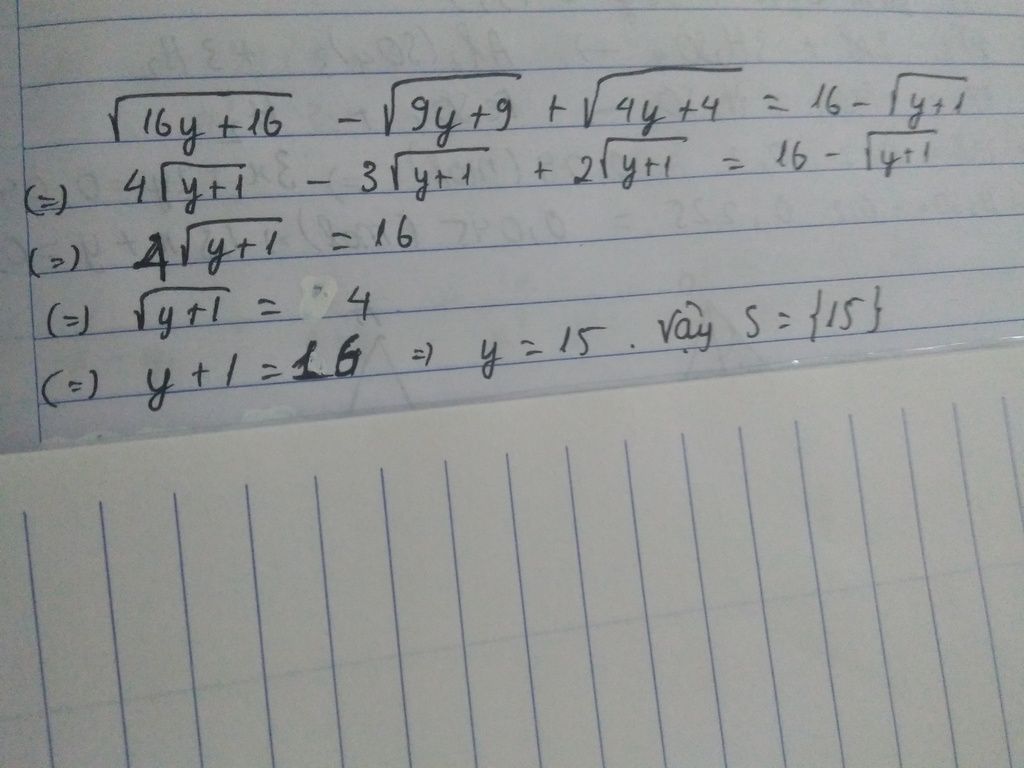 √(16y+16) - √(9y+9) + √(4y+4) = 16 - √(y+1)
(=) 4√(y+1) - 3√(y+1) + 2√(y+1) = 16 - √(y+1)
(=) 4√(y+1) = 16
(=) √(y+1) = 4
(=) y + 1 = 16 => y = 15 . Vậy S = {15}